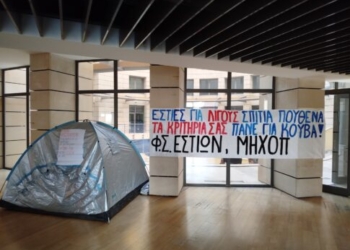 ΕΣΤΙΕΣ ΓΙΑ ΛΙΓΟΥΣ ΣΠΙΤΙΑ ΠΟΥΘΕΝΑ
ΤΑ ΚΡΙΤΗΡΙΑ ΣΑΣ ΠΑΝΕ ΓΙΑ ΚΟΥΒΑ!
Φ.Σ. ΕΣΤΙΩΝ, ΜΗΧΟΠ